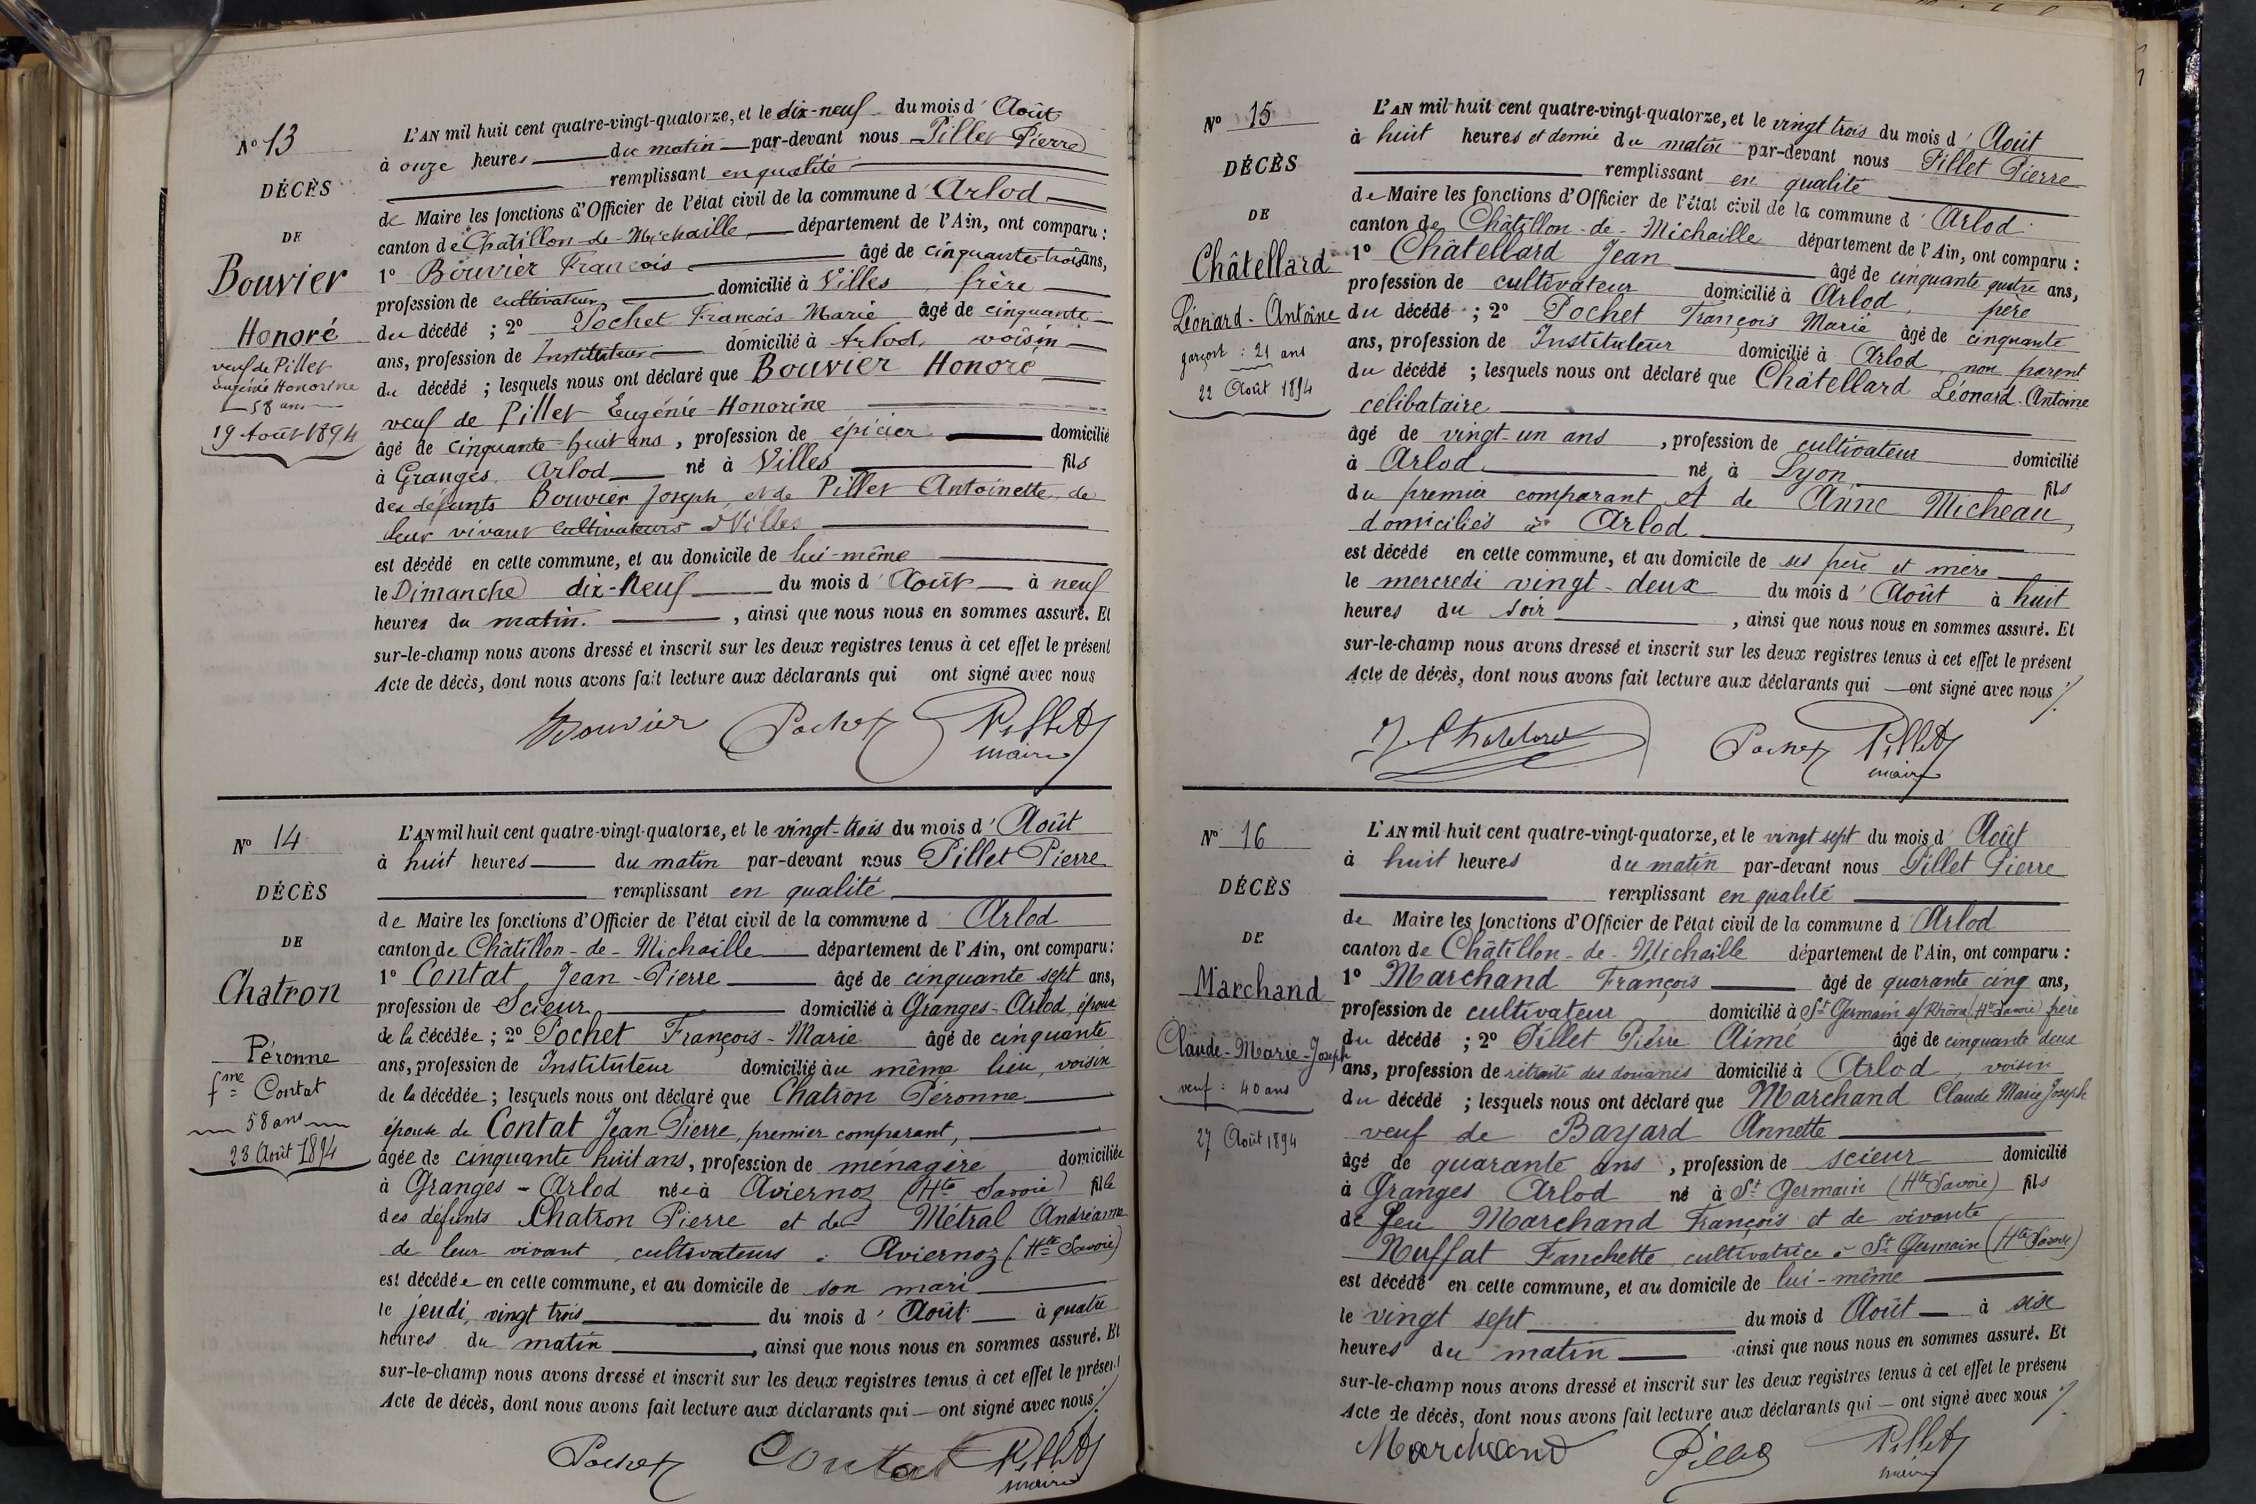 N° 13
DÉCÈS
DE
Bouvier
Honoré
veuf de Pillet
Eugénie Honorine
58 ans
19 Août 1894
L'AN mil huit cent quatre-vingt-quatorze, et le dix-neuf du mois d' Août
à onze heures du matin par-devant nous Pillet Pierre
remplissant en qualité
de Maire les fonctions d'Officier de l'état civil de la commune d' Arlod
canton de Chatillon-de-Michaille département de l'Ain, ont comparu :
1° Bouvier François âgé de cinquante-trois ans,
profession de cultivateur domicilié à Villes, frère
du décédé ; 2° Pochet François-Marie âgé de cinquante
ans, profession de Instituteur domicilié à Arlod, voisin
du décédé ; lesquels nous ont déclaré que Bouvier Honoré
veuf de Pillet Eugénie-Honorine
âgé de cinquante huit ans, profession de épicier domicilié
à Granges Arlod né à Villes fils
des défunts Bouvier Joseph, et de Pillet Antoinette, de
leur vivant cultivateurs à Villes
est décédé en cette commune, et au domicile de lui-même
le Dimanche dix-neuf du mois d' Août à neuf
heures du matin. , ainsi que nous nous en sommes assuré. Et
sur-le-champ nous avons dressé et inscrit sur les deux registres tenus à cet effet le présent
Acte de décès, dont nous avons fait lecture aux déclarants qui ont signé avec nous
Bouvier Pochet Pillet
maire
N° 14
DÉCÈS
DE
Chatron
Péronne
fme Contat
58 ans
23 Août 1894
L'AN mil huit cent quatre-vingt-quatorze, et le vingt-trois du mois d' Août
à huit heures du matin par-devant nous Pillet Pierre
remplissant en qualité
de Maire les fonctions d'Officier de l'état civil de la commune d Arlod
canton de Châtillon-de-Michaille département de l'Ain, ont comparu :
1° Contat Jean-Pierre âgé de cinquante sept ans,
profession de Scieur domicilié à Granges-Arlod, époux
de la décédée ; 2° Pochet François-Marie âgé de cinquante
ans, profession de Instituteur domicilié au même lieu, voisin
de la décédée ; lesquels nous ont déclaré que Chatron Péronne
épouse de Contat Jean Pierre, premier comparant,
âgée de cinquante huit ans, profession de ménagère domiciliée
à Granges-Arlod née à Aviernoz (Hte Savoie) fille
des défunts Chatron Pierre et de Métral Andréanne
de leur vivant, cultivateurs à Aviernoz (Hte Savoie)
est décédée en cette commune, et au domicile de son mari
le jeudi, vingt trois du mois d' Août à quatre
heures du matin , ainsi que nous nous en sommes assuré. Et
sur-le-champ nous avons dressé et inscrit sur les deux registres tenus à cet effet le présent
Acte de décès, dont nous avons fait lecture aux déclarants qui — ont signé avec nous ./.
Pochet Contat Pillet
maire
N° 15
DÉCÈS
DE
Châtellard
Léonard-Antoine
garçon : 21 ans
22 Août 1894
L'AN mil huit cent quatre-vingt-quatorze, et le vingt trois du mois d' Août
à huit heures et demie du matin par-devant nous Pillet Pierre
remplissant en qualité
de Maire les fonctions d'Officier de l'état civil de la commune d' Arlod
canton de Châtillon-de-Michaille département de l'Ain, ont comparu :
1° Châtellard Jean âgé de cinquante quatre ans,
profession de cultivateur domicilié à Arlod, père
du décédé ; 2° Pochet François Marie âgé de cinquante
ans, profession de Instituteur domicilié à Arlod, non parent
du décédé ; lesquels nous ont déclaré que Châtellard Léonard-Antoine
célibataire
âgé de vingt-un ans , profession de cultivateur domicilié
à Arlod né à Lyon fils
du premier comparant et de Anne Micheau,
domiciliés à Arlod
est décédé en cette commune, et au domicile de ses père et mère
le mercredi vingt-deux du mois d' Août à huit
heures du soir , ainsi que nous nous en sommes assuré. Et
sur-le-champ nous avons dressé et inscrit sur les deux registres tenus à cet effet le présent
Acte de décès, dont nous avons fait lecture aux déclarants qui — ont signé avec nous ./.
J Chatelard Pochet Pillet
maire
N° 16
DÉCÈS
DE
Marchand
Claude-Marie-Joseph
veuf : 40 ans
27 Août 1894
L'AN mil huit cent quatre-vingt-quatorze, et le vingt sept du mois d' Août
à huit heures du matin par-devant nous Pillet Pierre
remplissant en qualité
de Maire les fonctions d'Officier de l'état civil de la commune d Arlod
canton de Châtillon-de-Michaille département de l'Ain, ont comparu :
1° Marchand François âgé de quarante cinq ans,
profession de cultivateur domicilié à St Germain s/ Rhône (Hte Savoie) frère
du décédé ; 2° Pillet Pierre Aimé âgé de cinquante deux
ans, profession de retraité des douanes domicilié à Arlod, voisin
du décédé ; lesquels nous ont déclaré que Marchand Claude Marie Joseph
veuf de Bayard Annette
âgé de quarante ans , profession de scieur domicilié
à Granges Arlod né à St Germain (Hte Savoie) fils
de feu Marchand François et de vivante
Neuffat Fanchette cultivatrice à St Germain (Hte Savoie)
est décédé en cette commune, et au domicile de lui-même
le vingt sept du mois d Août à six
heures du matin ainsi que nous nous en sommes assuré. Et
sur-le-champ nous avons dressé et inscrit sur les deux registres tenus à cet effet le présent
Acte de décès, dont nous avons fait lecture aux déclarants qui — ont signé avec nous ./.
Marchand Pillet Pillet
maire